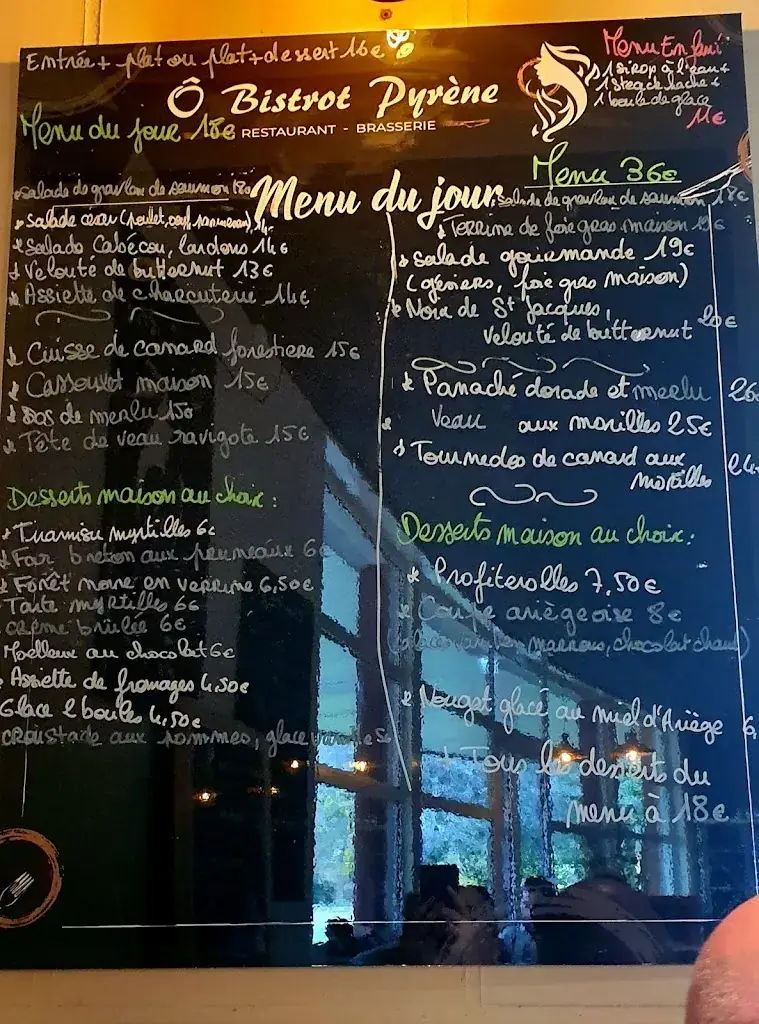 Entrée + plat ou plat + dessert 16€
Ô Bistrot Pyrène
RESTAURANT - BRASSERIE
Menu Enfant:
1 sirop à l'eau +
1 steak haché +
1 boule de glace
11€
Menu du jour 18€
Menu du jour
Salade de gravlax de saumon 18€
* Salade césar (poulet, oeuf, parmesan) 14€
* Salade Cabécou, lardons 14€
* Velouté de butternut 13€
* Assiette de charcuterie 14€
* Cuisse de canard forestière 15€
* Cassoulet maison 15€
* Dos de merlu 15€
* Tête de veau ravigote 15€
Desserts maison au choix :
* Tiramisu myrtilles 6€
* Far breton aux pruneaux 6€
* Forêt noire en verrine 6,50€
Tarte myrtilles 6€
crème brûlée 6€
Moelleux au chocolat 6€
Assiette de fromages 4,50€
Glace 2 boules 4,50€
croustade aux pommes, glace
Menu 36€
Salade de gravlax de saumon 18€
* Terrine de foie gras maison 19€
* Salade gourmande 19€
(gésiers, foie gras maison)
* Noix de St Jacques,
velouté de butternut 20€
* Panaché dorade et merlu 26€
* Veau aux morilles 25€
* Tournedos de canard aux
morilles 24
Desserts maison au choix:
* Profiterolles 7,50€
* Coupe ariégeoise 8€
marrons, chocolat chaud)
* Nougat glacé au miel d'Ariège 6,
* Tous les desserts du
menu à 18€